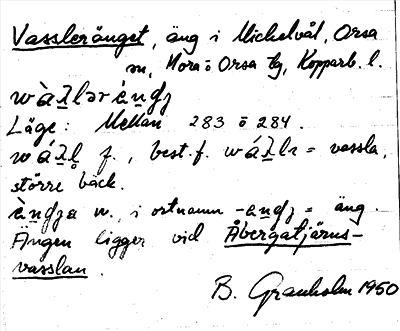 Vassleränget, äng i Michelvål, Orsa
sn, Mora o Orsa tg, Kopparb. l.
Läge: Mellan 283 o 284.
f., best. f. = vassla,
större bäck.
n., i ortnamn = äng.
Ängen ligger vid Åbergatjärns-
vasslan.
B. Granholm 1950